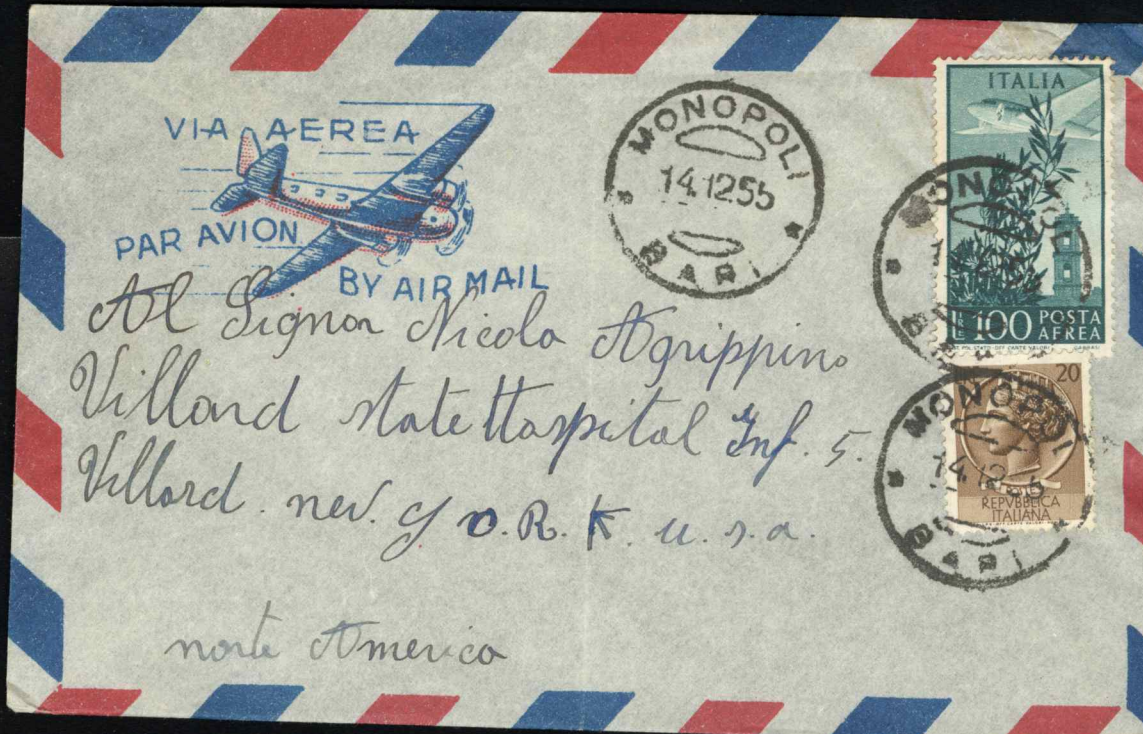 VIA AEREA
PAR AVION
BY AIR MAIL
MONOPOLI
14.12.55
BARI
ITALIA
LIRE 100 POSTA AEREA
MONOPOLI
BARI
20
REPVBBLICA
ITALIANA
MONOPOLI
14.12.55
BARI
Al Signor Nicola Agrippino
Villard state Hospital Inf. 5.
Villard. new. y o.R.K. u.s.a.
norte America